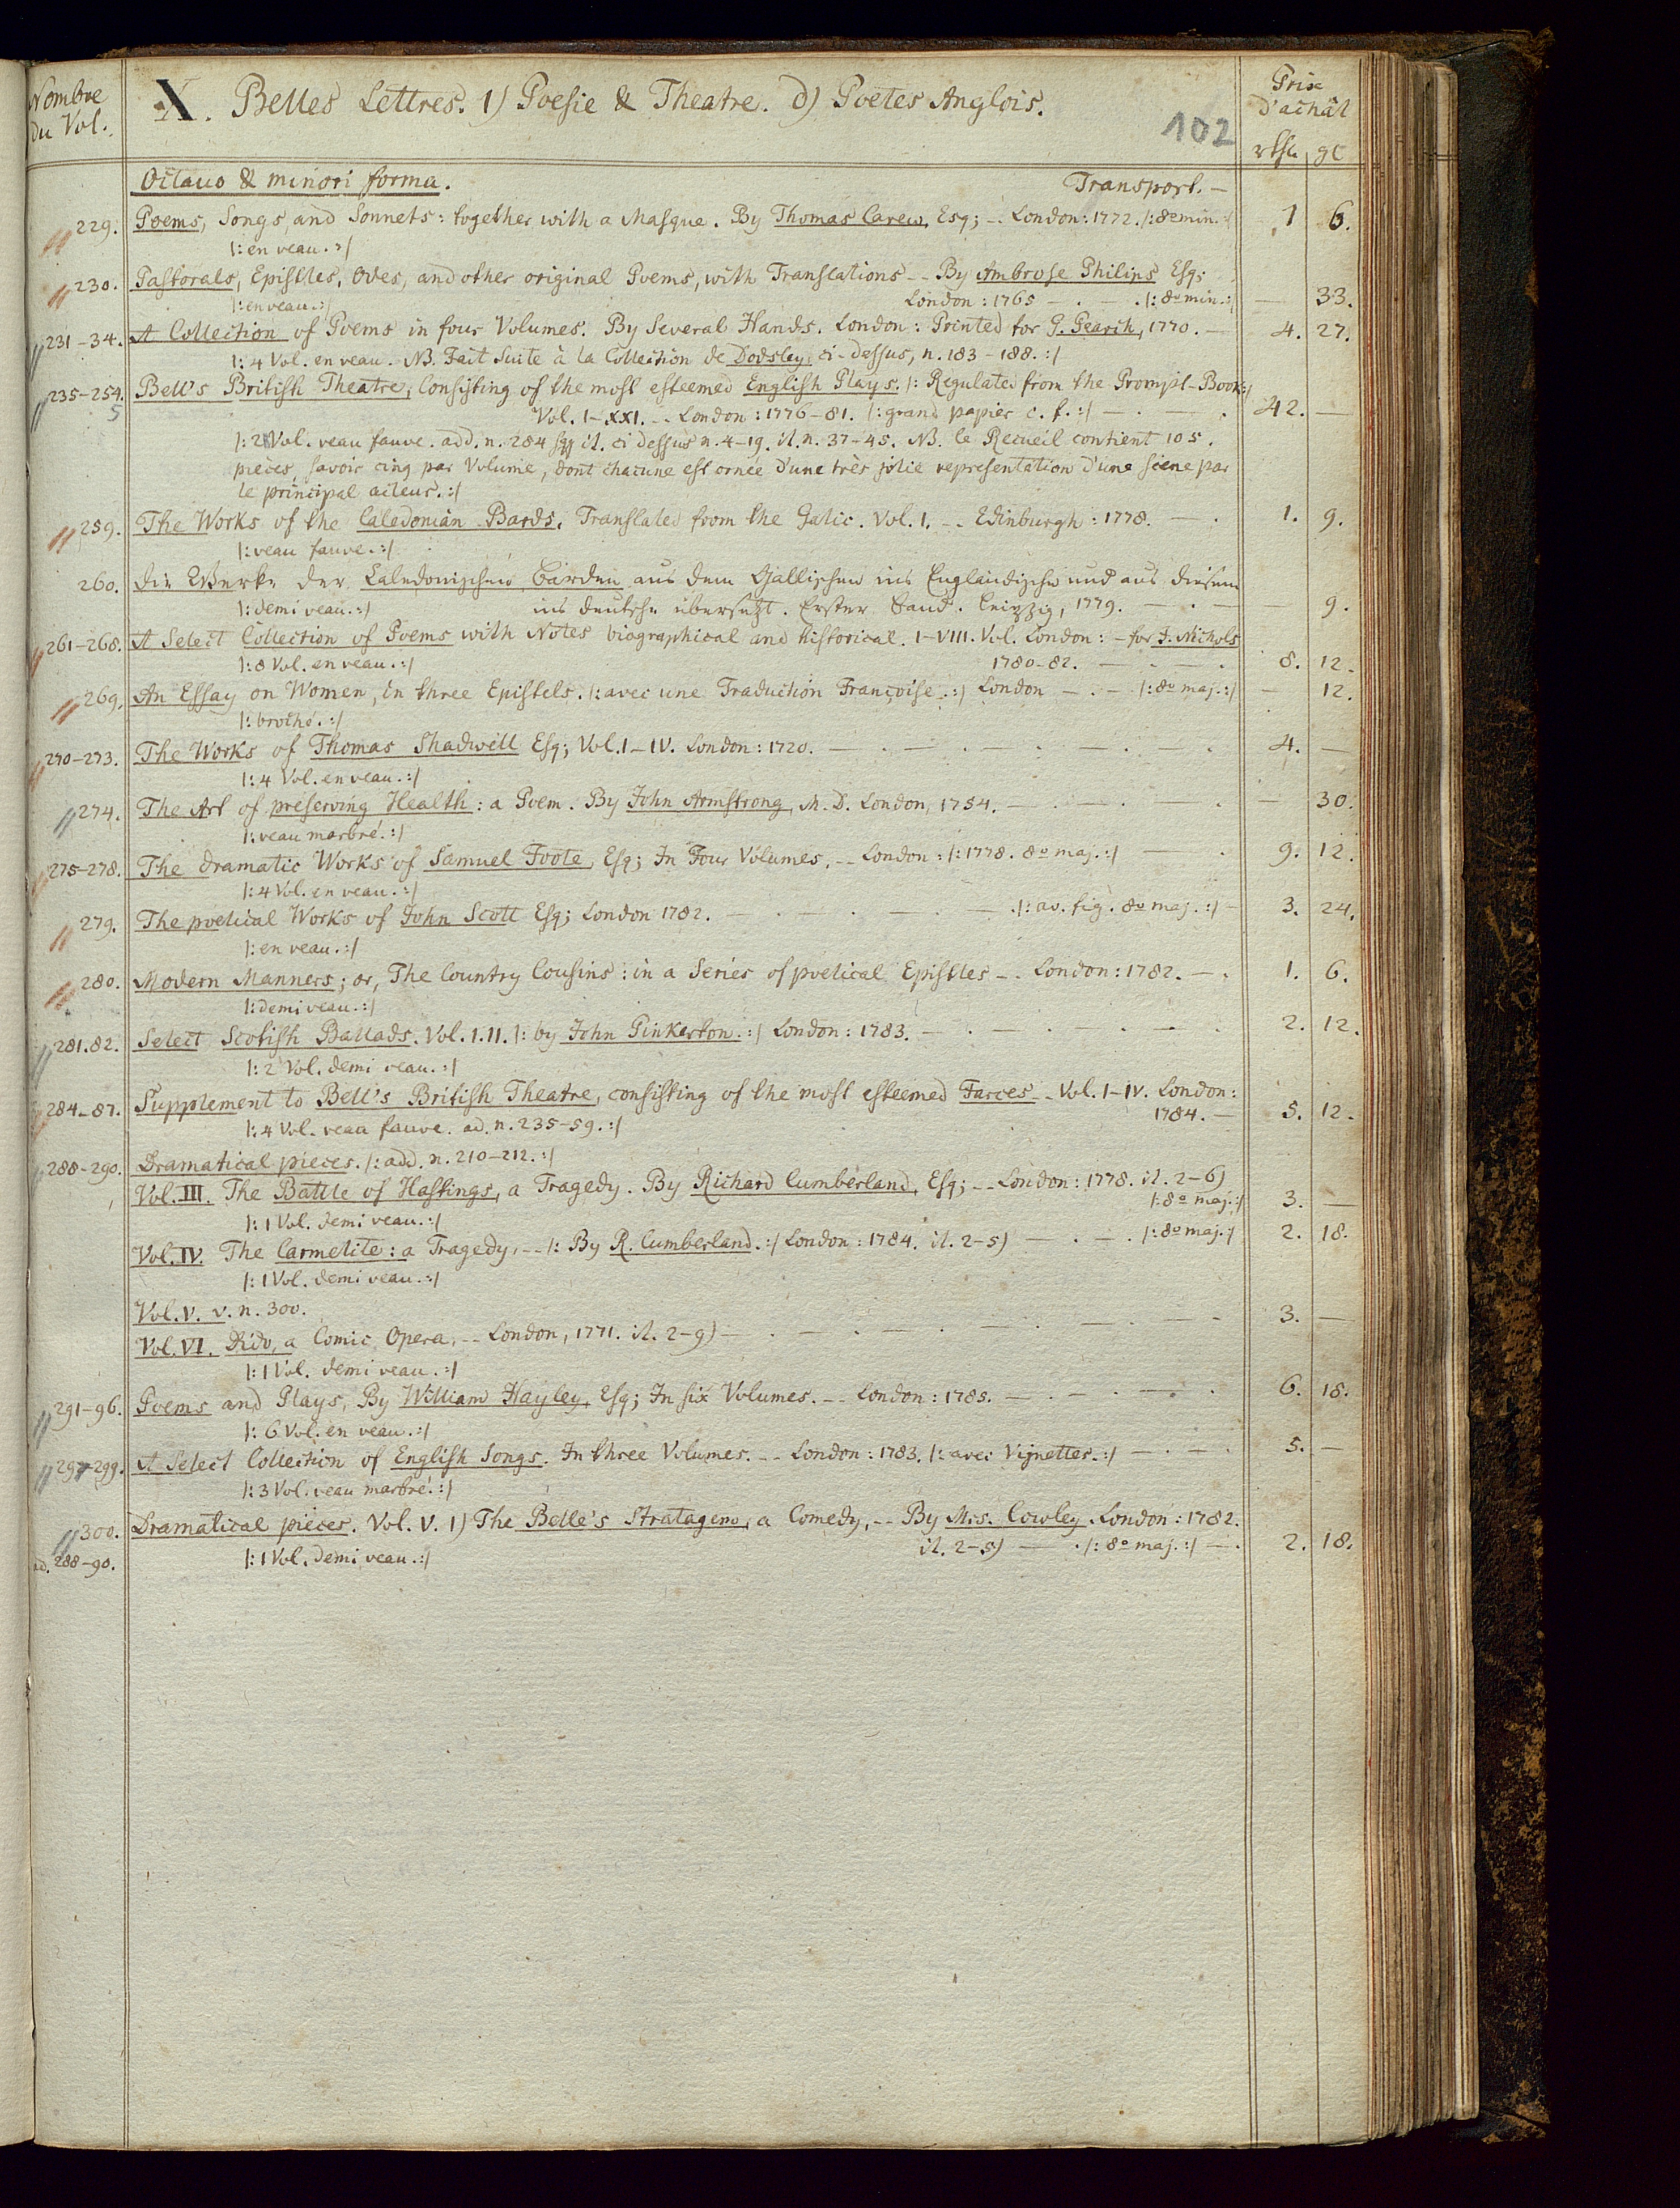 Nombre du Vol.
X. Belles Lettres. 1) Poesie & Theatre. d) Poëtes Anglois.
Prix d'achât
102
rthl. gl
Octavo & minori forma. Transport. —
229. Poems, Songs, and Sonnets: together with a Masque. By Thomas Carew, Esq; -- London: 1772. /: 8º min. :/ 1 6.
/: en veau. :/
230. Pastorals, Epistles, Odes, and other original Poems, with Translations -- By Ambrose Philips Esq;
/: en veau. :/ London: 1765 — . — . /: 8º min. :/ — 33.
231-34. A Collection of Poems in four Volumes. By Several Hands. London: Printed for G. Pearch, 1770. — 4. 27.
/: 4 Vol. en veau. NB. Fait Suite à la Collection de Dodsley, ci-dessus, n. 183-188. :/
235-254. Bell's British Theatre, Consisting of the most esteemed English Plays. /: Regulated from the Prompt-Book :/
5 Vol. I-XXI. -- London: 1776-81. /: grand papier c. f. :/ — . — . 42. —
/: 21 Vol. veau fauve. add. n. 284 sqq it. ci dessus n. 4-19. it. n. 37-45. NB. le Recueil contient 105.
pièces, savoir cinq par Volume, dont chacune est ornée d'une très jolie representation d'une scene par
le principal acteur. :/
259. The Works of the Caledonian Bards. Translated from the Galic. Vol. 1. -- Edinburgh: 1778. — . 1. 9.
/: veau fauve. :/
260. Die Werke der Caledonischen Barden aus dem Gallischen ins Engländische und aus diesem
/: demi veau. :/ ins deutsche übersetzt. Erster Band. Leipzig, 1779. — . — — 9.
261-268. A Select Collection of Poems with Notes biographical and historical. I-VIII. Vol. London: - for J. Nichols
/: 8 Vol. en veau. :/ 1780-82. — . — . 8. 12.
269. An Essay on Women, in three Epistels. /: avec une Traduction Françoise. :/ London — . — /: 8º maj. :/ — 12.
/: broché. :/
270-273. The Works of Thomas Shadwell Esq; Vol. I-IV. London: 1720. — . — . — . — . — . 4. —
/: 4 Vol. en veau. :/
274. The Art of preserving Health: a Poem. By John Armstrong, M. D. London, 1754. — . — . . — 30.
/: veau marbré. :/
275-278. The dramatic Works of Samuel Foote, Esq; In Four Volumes, -- London: /: 1778. 8º maj. :/ — . 9. 12.
/: 4 Vol. en veau. :/
279. The poetical Works of John Scott Esq; London 1782. — . — . — . — . /: av. fig. 8º maj. :/ — 3. 24.
/: en veau. :/
280. Modern Manners; or, The Country Cousins: in a Series of poetical Epistles -- London: 1782. — . 1. 6.
/: demi veau. :/
281.82. Select Scotish Ballads. Vol. I.II. /: by John Pinkerton. :/ London: 1783. — . — . . — . 2. 12.
/: 2 Vol. demi veau. :/
284-87. Supplement to Bell's British Theatre, consisting of the most esteemed Farces -- Vol. I-IV. London:
/: 4 Vol. veau fauve. ad. n. 235-59. :/ 1784. — 5. 12.
288-290. Dramatical pieces. /: add. n. 210-212. :/
Vol. III. The Battle of Hastings, a Tragedy. By Richard Cumberland, Esq; -- London: 1778. it. 2-6)
/: 1 Vol. demi veau. :/ /: 8º maj. :/ 3. —
Vol. IV. The Carmelite: a Tragedy, -- /: By R. Cumberland. :/ London: 1784. it. 2-5) — . — . /: 8º maj. :/ 2. 18.
/: 1 Vol. demi veau. :/
Vol. V. v. n. 300.
Vol. VI. Dido, a Comic Opera, -- London, 1771. it. 2-9) — . — . — . — . — . — . — 3. —
/: 1 Vol. demi veau. :/
291-96. Poems and Plays, By William Hayley, Esq; In six Volumes. -- London: 1785. — . — . — . 6. 18.
/: 6 Vol. en veau. :/
297-299. A Select Collection of English Songs. In three Volumes. -- London: 1783. /: avec Vignettes. :/ — . — . 5. —
/: 3 Vol. veau marbré. :/
300. Dramatical pieces. Vol. V. 1) The Belle's Stratagem, a Comedy, -- By Mrs. Cowley London: 1782.
ad. 288-90. /: 1 Vol. demi veau. :/ it. 2-5) — . /: 8º maj. :/ — . 2. 18.